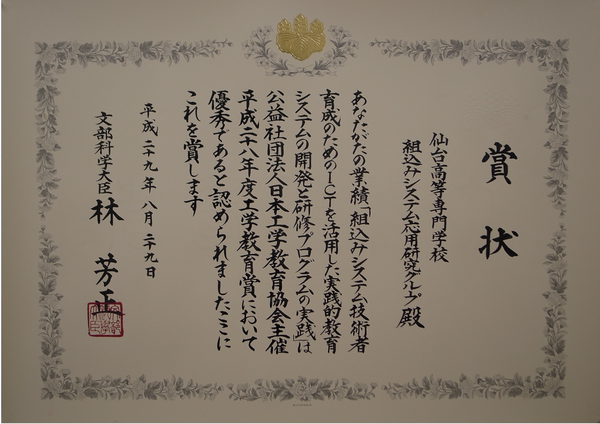 賞状
仙台高等専門学校
組込みシステム応用研究グループ殿
あなたがたの業績「組込みシステム技術者
育成のためのICTを活用した実践的教育
システムの開発と研修プログラムの実践」は
公益社団法人日本工学教育協会主催
平成二十八年度工学教育賞において
優秀であると認められましたここに
これを賞します
平成二十九年八月二十九日
文部科学大臣 林芳正